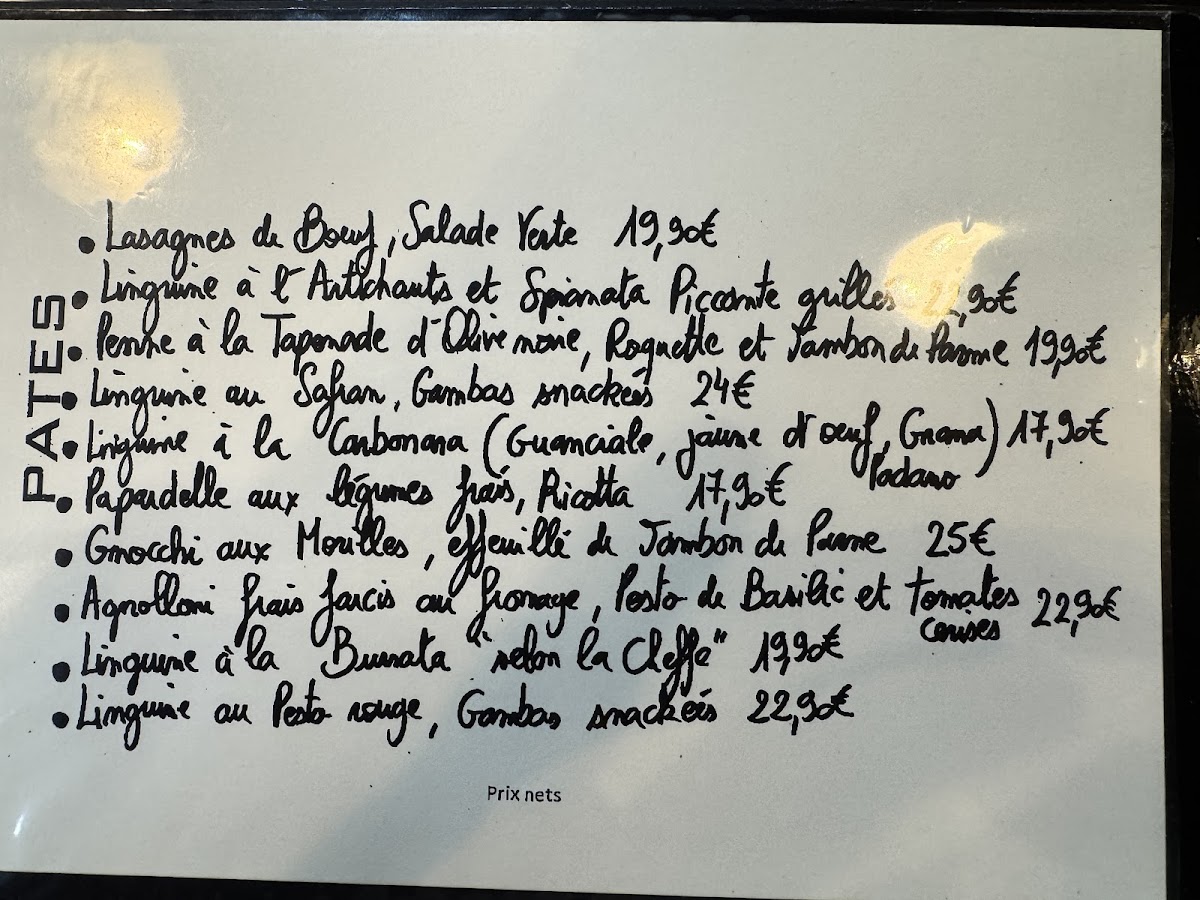 PATES
• Lasagnes de Bœuf, Salade Verte 19,90€
• Linguine à l'Artichauts et Spianata Piccante grillés ,90€
• Penne à la Taponade d'Olive noire, Roquette et Jambon de Parme 19,90€
• Linguine au Safran, Gambas snackées 24€
• Linguine à la Carbonara (Guanciale, jaune d'oeuf, Grana) 17,90€
Padano
• Papardelle aux légumes frais, Ricotta 17,90€
• Gnocchi aux Morilles, effeuillé de Jambon de Parme 25€
• Agnolloni frais farcis au fromage, Pesto de Basilic et tomates 22,90€
cerises
• Linguine à la Burrata "selon la Cheffe" 19,90€
• Linguine au Pesto rouge, Gambas snackées 22,90€
Prix nets